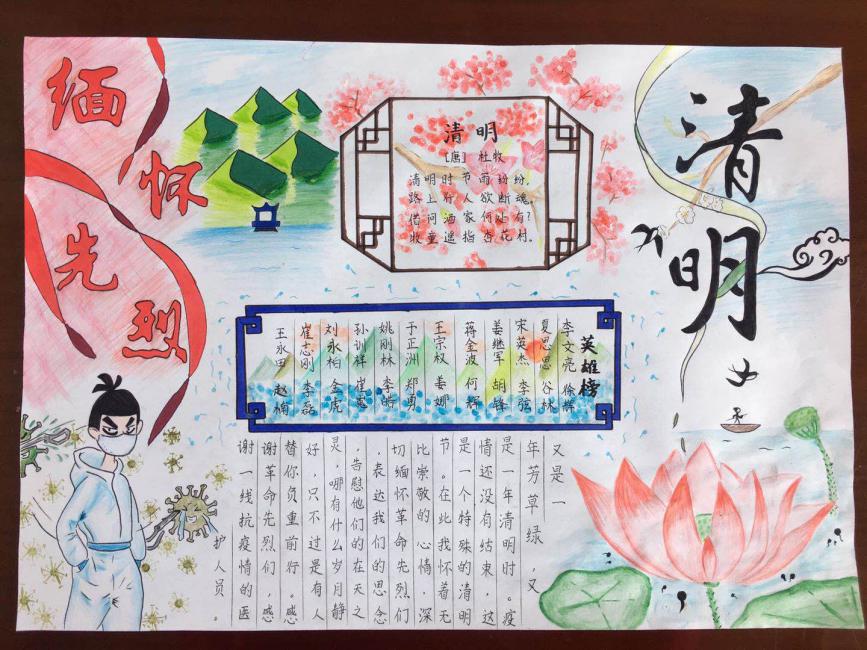 缅怀先烈
清明
[唐] 杜牧
清明时节雨纷纷,
路上行人欲断魂。
借问酒家何处有?
牧童遥指杏花村。
清明
英雄榜
李文亮 徐辉
夏思思 谷林
宋英杰 李弦
姜继军 胡峰
蒋金波 何辉
王宗权 姜娜
于正洲 郑勇
姚刚林 李昕
孙训祥
刘永柏 金虎
崔志刚 李磊
王永田 赵楠
又是一
年芳草绿,又
是一年清明时。疫
情还没有结束,这
是一个特殊的清明
节。在此我怀着无
比崇敬的心情,深
切缅怀革命先烈们
,表达我们的思念
,告慰他们的在天之
灵,哪有什么岁月静
好,只不过是有人
替你负重前行。感
谢革命先烈们,感
谢一线抗疫情的医
护人员。